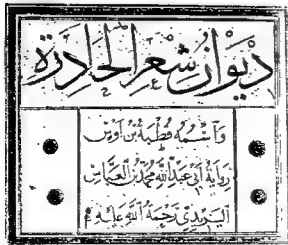 ديوان شعر الحادرة
واسمه قطبة بن أوس
رواية أبي عبد الله محمد بن العباس
اليزيدي رحمة الله عليه